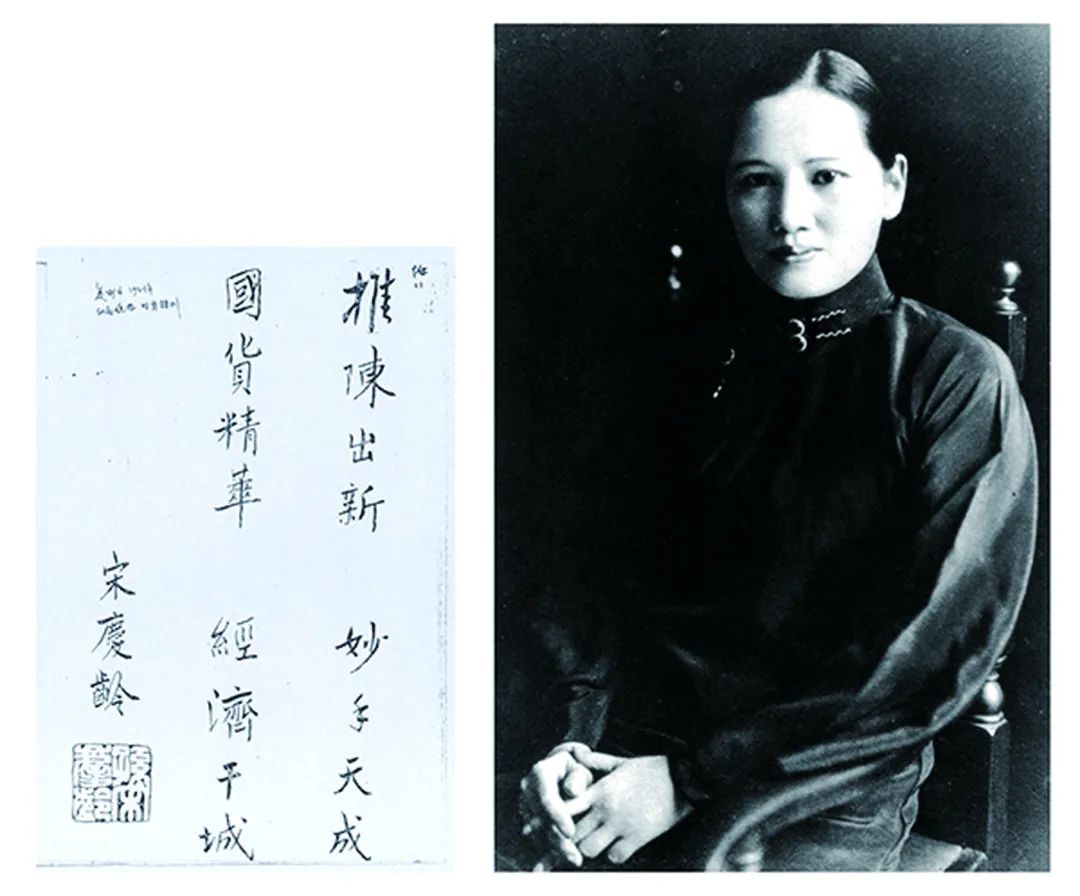 推陳出新 妙手天成
國貨精華 經濟干城
宋慶齡